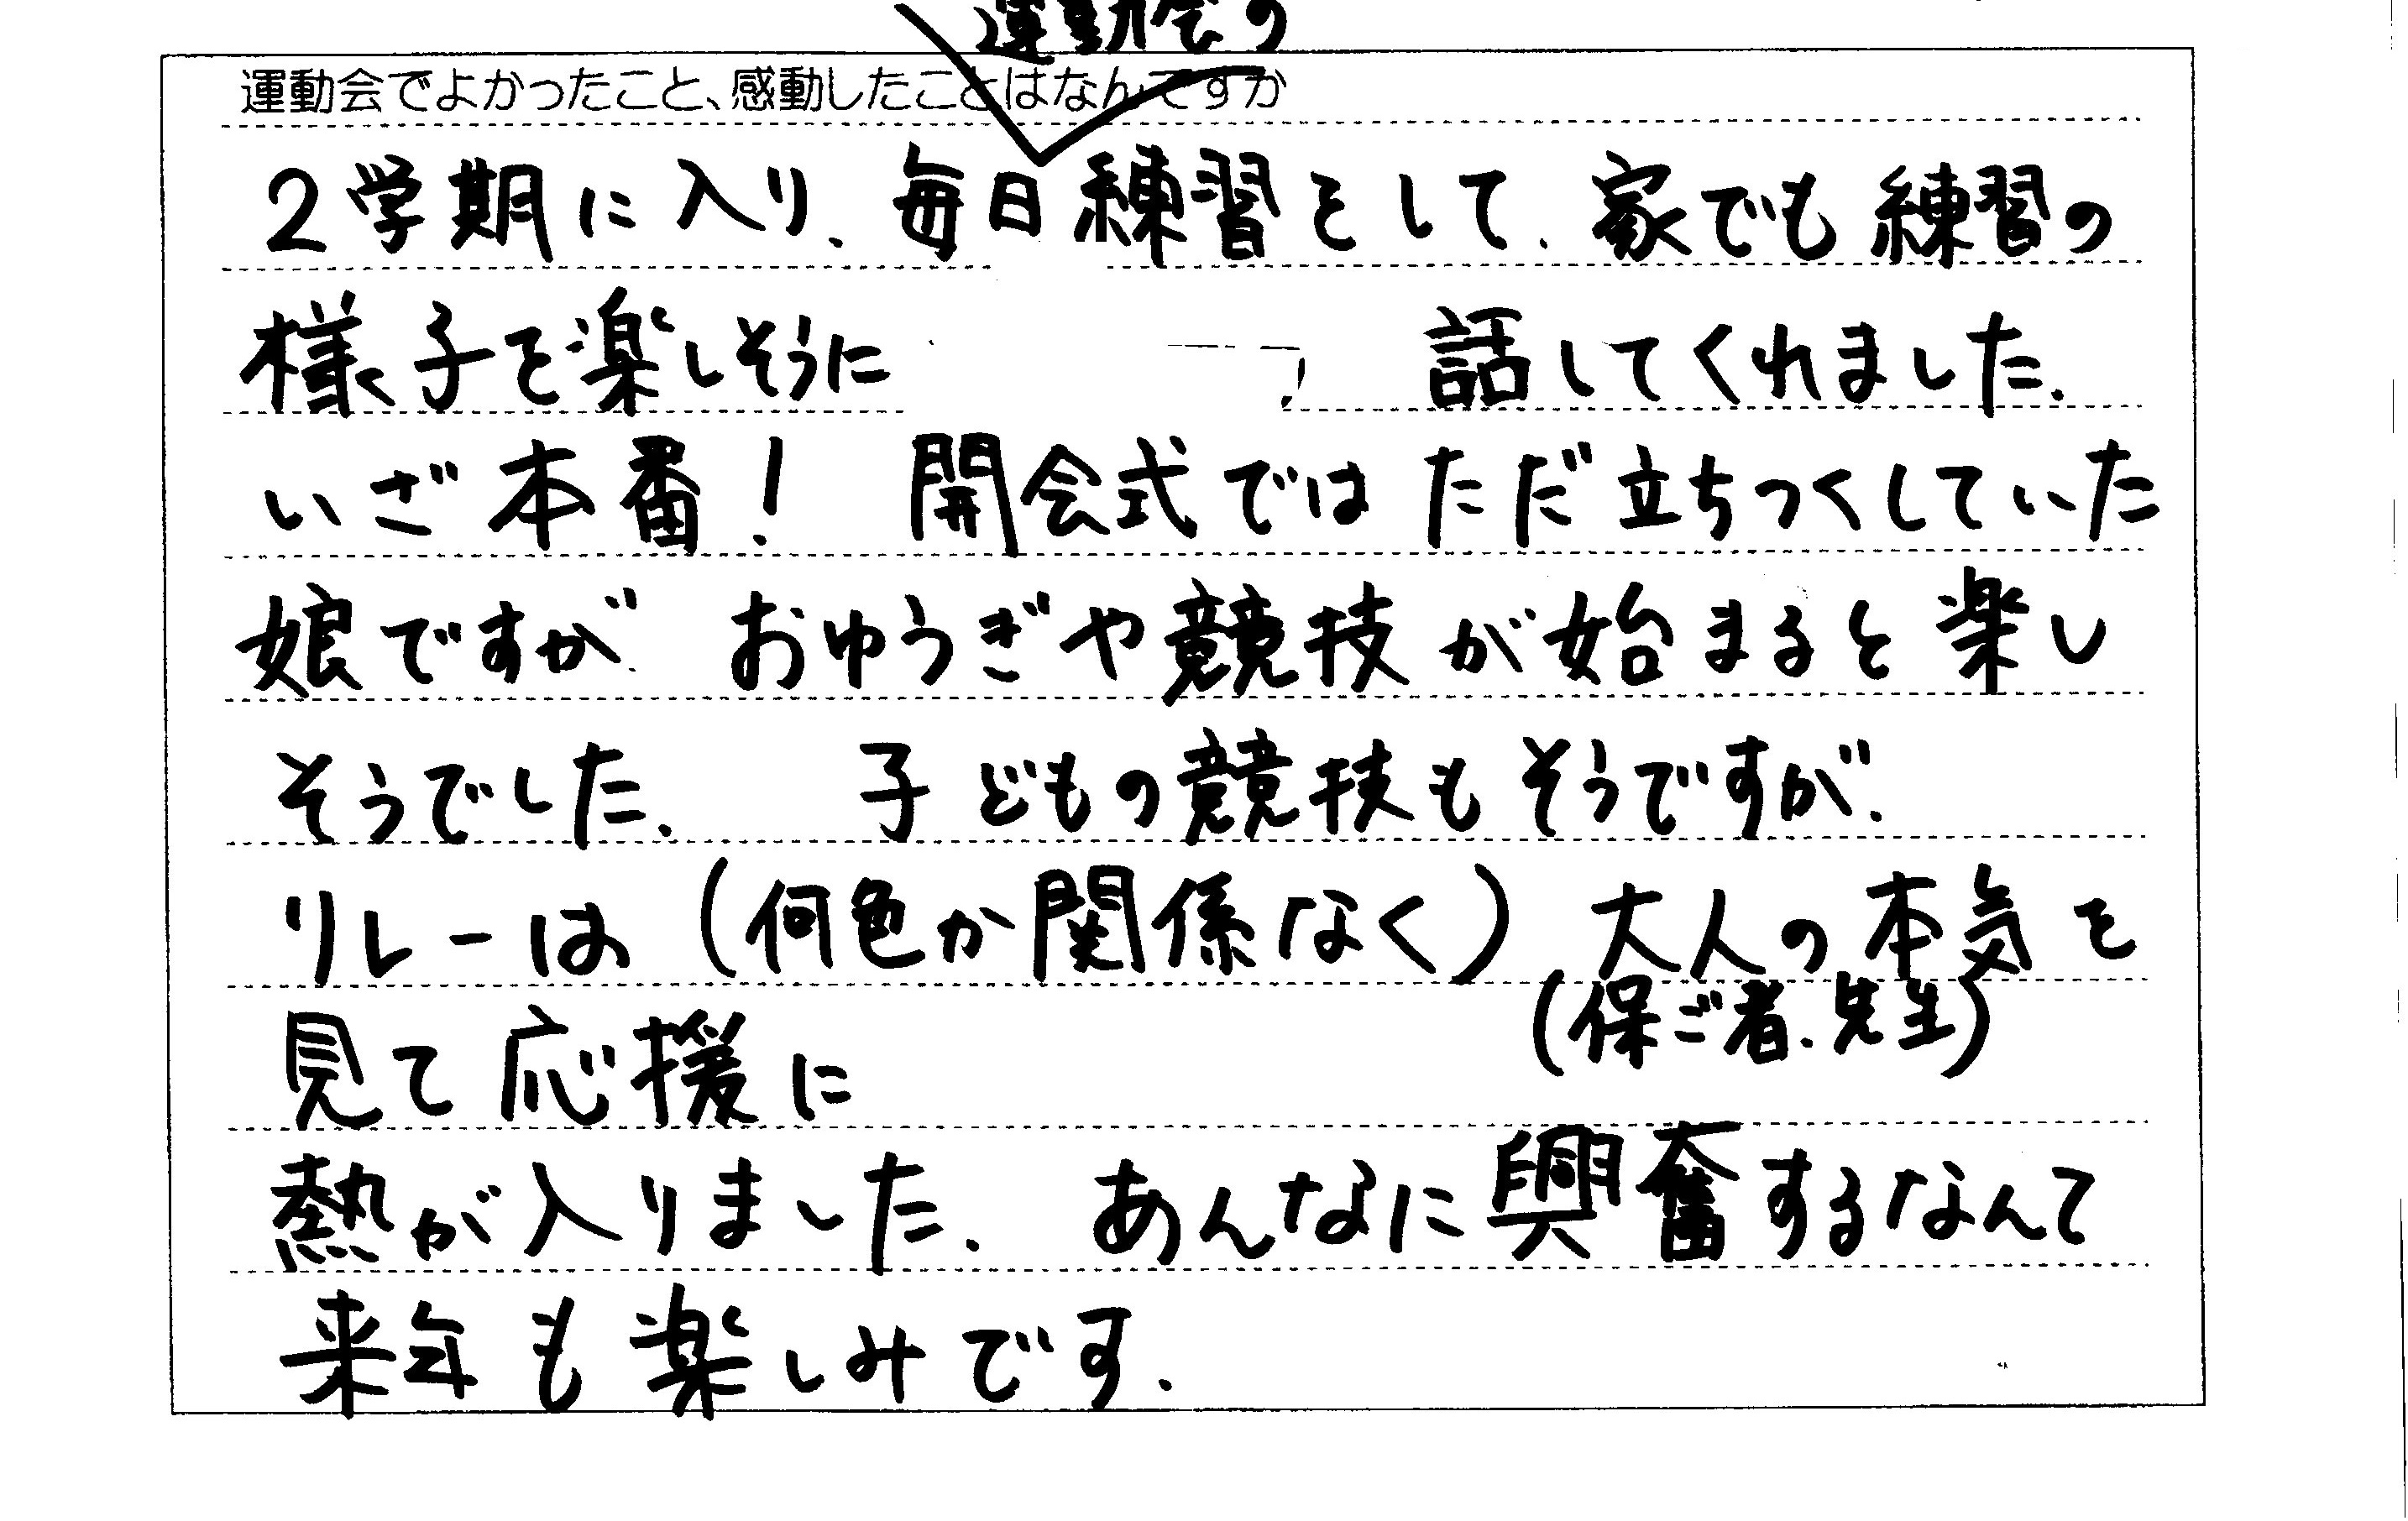 運動会の
運動会でよかったこと、感動したことはなんですか
2学期に入り、毎日練習をして、家でも練習の
様子を楽しそうに 話してくれました.
いざ本番! 開会式では ただ立ちつくしていた
娘ですが、おゆうぎや競技が始まると楽し
そうでした. 子どもの競技もそうですが、
リレーは(何色か関係なく)大人の本気を
(保ご者、先生)
見て応援に
熱が入りました. あんなに興奮するなんて
来年も楽しみです.